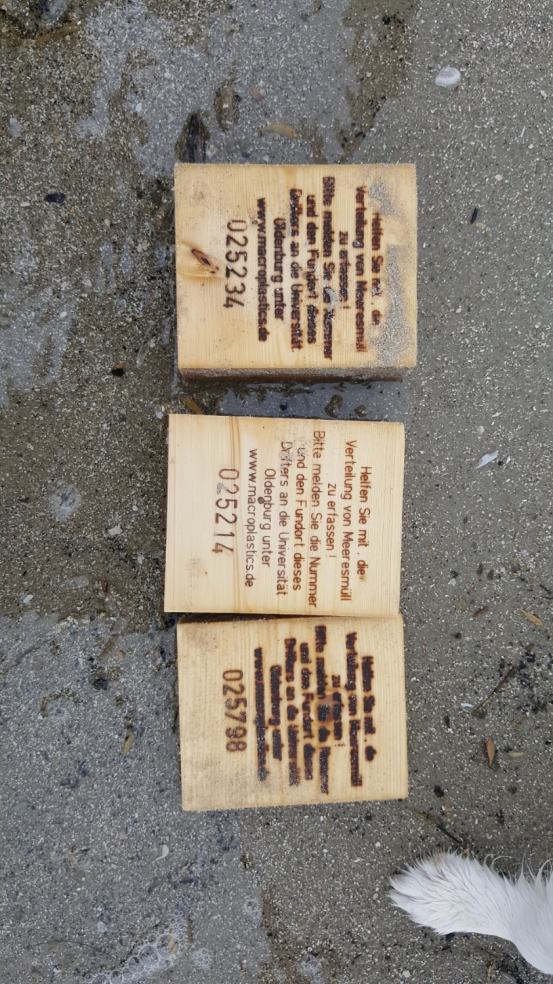 Helfen Sie mit, die
Verteilung von Meeresmüll
zu erfassen!
Bitte melden Sie die Nummer
und den Fundort dieses
Drifters an die Universität
Oldenburg unter
www.macroplastics.de
025234
Helfen Sie mit, die
Verteilung von Meeresmüll
zu erfassen!
Bitte melden Sie die Nummer
und den Fundort dieses
Drifters an die Universität
Oldenburg unter
www.macroplastics.de
025214
Helfen Sie mit, die
Verteilung von Meeresmüll
zu erfassen!
Bitte melden Sie die Nummer
und den Fundort dieses
Drifters an die Universität
Oldenburg unter
www.macroplastics.de
025798